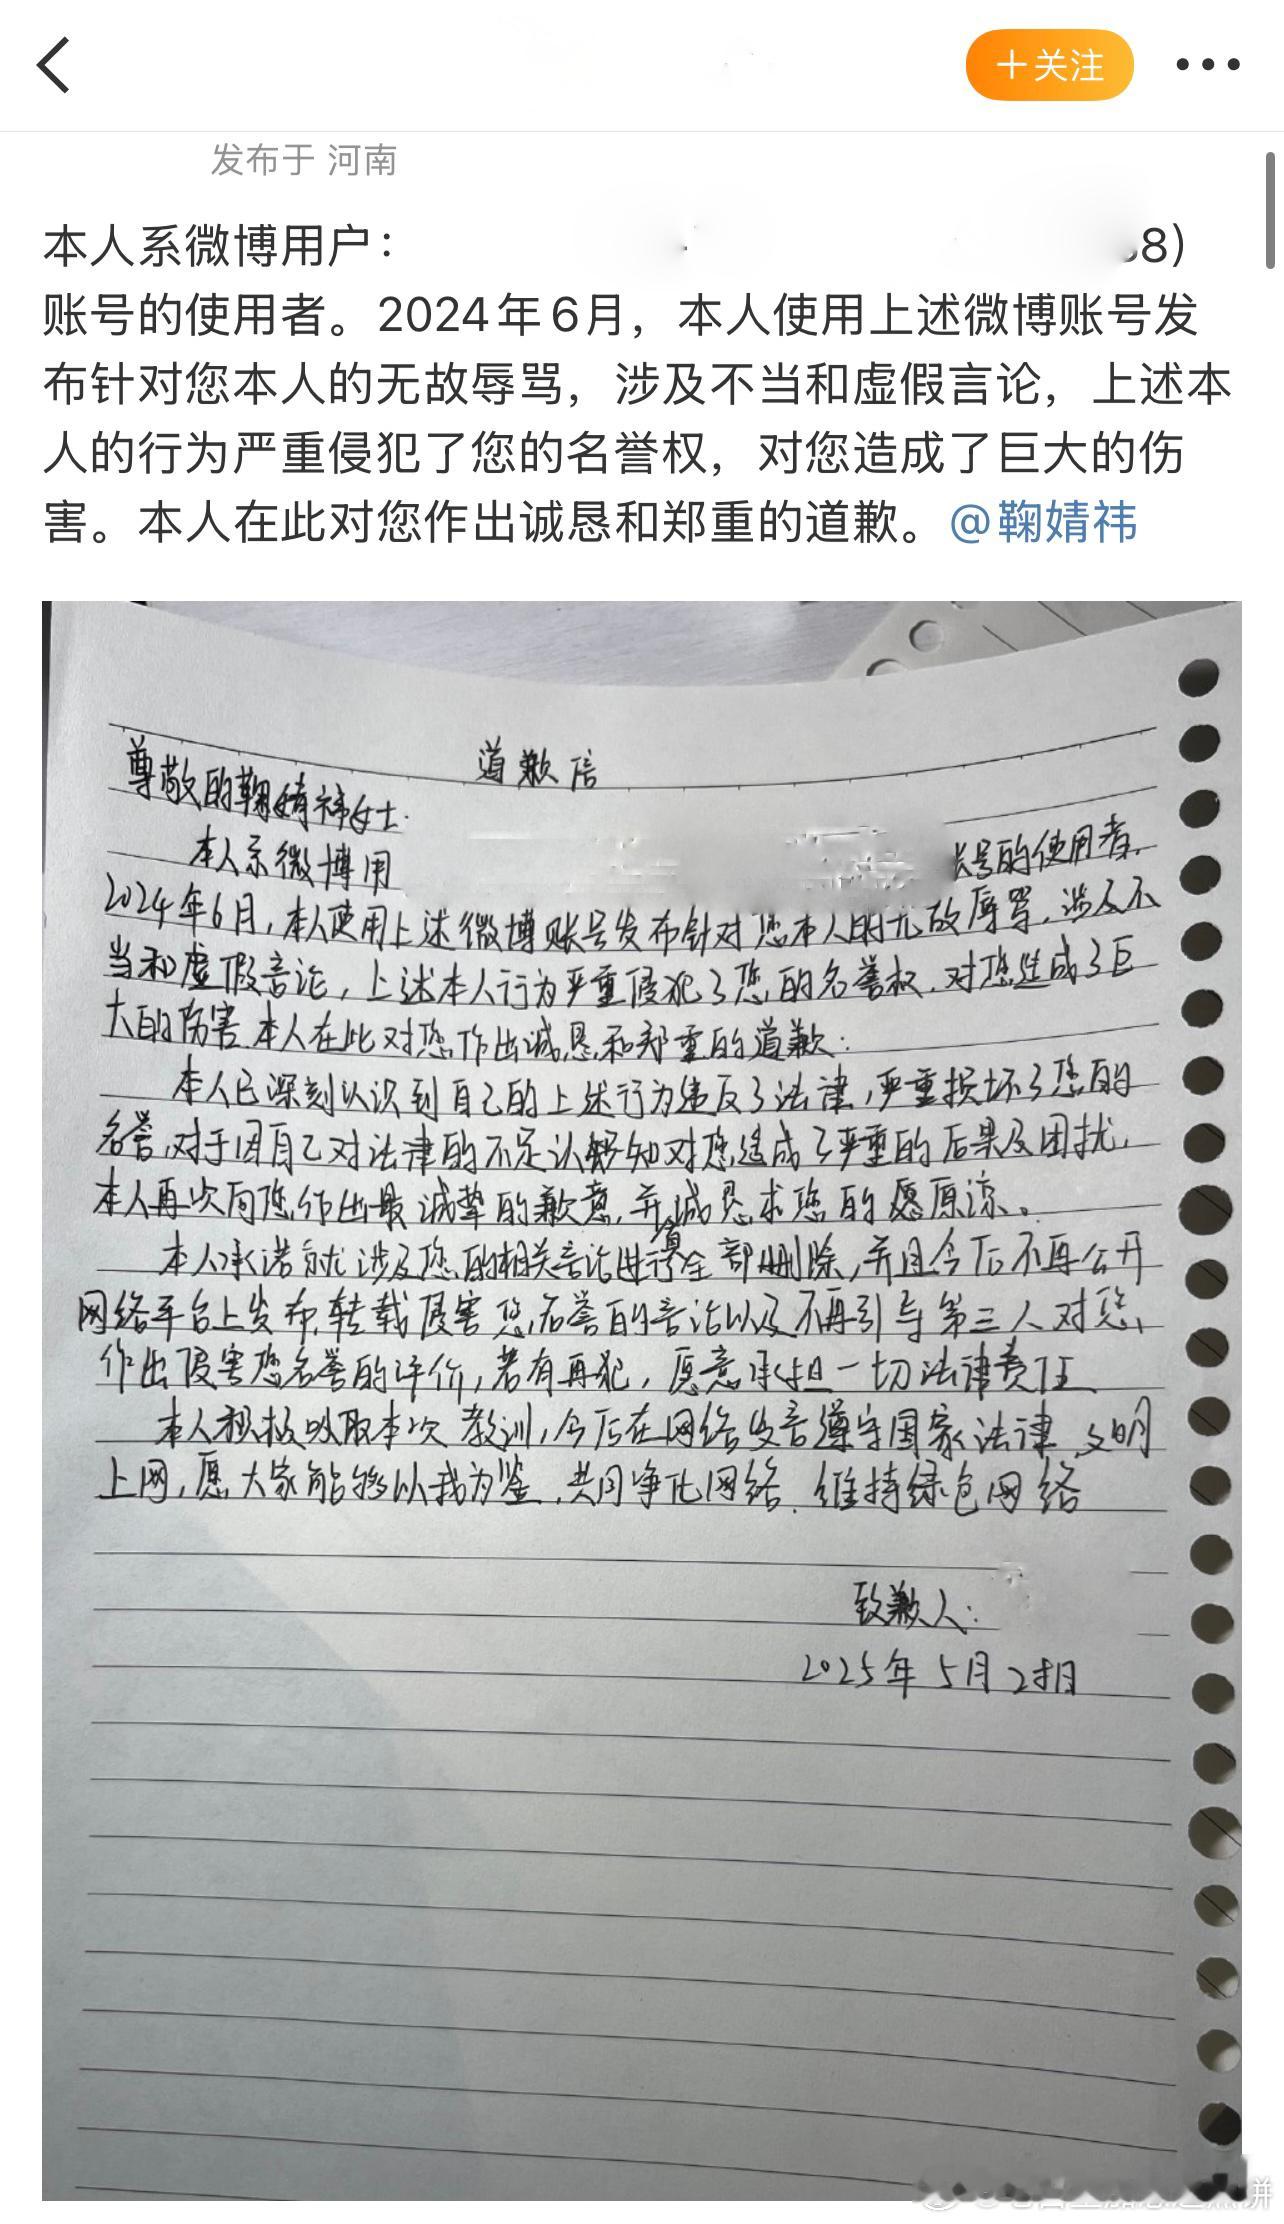 +关注
发布于 河南
本人系微博用户：
8)
账号的使用者。2024年6月，本人使用上述微博账号发
布针对您本人的无故辱骂，涉及不当和虚假言论，上述本
人的行为严重侵犯了您的名誉权，对您造成了巨大的伤
害。本人在此对您作出诚恳和郑重的道歉。@鞠婧祎
道歉信
尊敬的鞠婧祎女士.
本人系微博用 账号的使用者.
2024年6月,本人使用上述微博账号发布针对您本人的无故辱骂,涉及不
当和虚假言论,上述本人行为严重侵犯了您的名誉权,对您造成了巨
大的伤害.本人在此对您作出诚恳和郑重的道歉:
本人已深刻认识到自己的上述行为违反了法律,严重损坏了您的
名誉,对于因自己对法律的不足认知对您造成了严重的后果及困扰,
本人再次向您作出最诚挚的歉意,并诚恳求您的愿原谅。
本人承诺就涉及您的相关言论进行全部删除,并且今后不再公开
网络平台上发布,转载侵害您名誉的言论以及不再引导第三人对您,
作出侵害您名誉的评价,若有再犯,愿意承担一切法律责任
本人积极吸取本次教训,今后在网络发言遵守国家法律,文明
上网,愿大家能够以我为鉴,共同净化网络.维持绿色网络
致歉人:
2025年5月2日